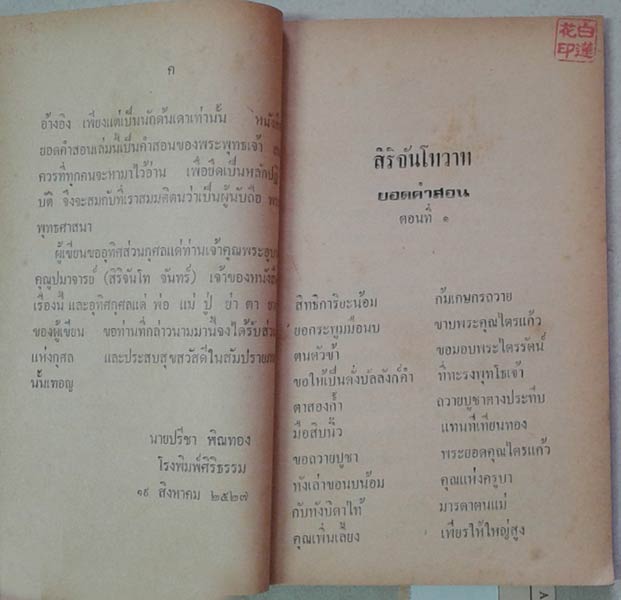 ค
อ้างอิง เพียงแต่เป็นนักด้นเดาเท่านั้น
ยอดคำสอนเล่มนี้เป็นคำสอนของพระพุทธเจ้า
ควรที่ทุกคนจะหามาไว้อ่าน เพื่อยึดเป็นหลักปฏิ
บัติ จึงจะสมกับที่เราสมมติตนว่าเป็นผู้นับถือ
พุทธศาสนา
ผู้เขียนขออุทิศส่วนกุศลแด่ท่านเจ้าคุณพระอุบา
คุณูปมาจารย์ (สิริจันโท จันทร์) เจ้าของหนังสือ
เรื่องนี้ และอุทิศกุศลแด่ พ่อ แม่ ปู่ ย่า ตา
ของผู้เขียน ขอท่านที่กล่าวนามมานี้จงได้รับส่วน
แห่งกุศล และประสบสุขสวัสดีในสัมปรายภพ
นั้นเทอญ
นายปรีชา พิณทอง
โรงพิมพ์ศิริธรรม
๑๙ สิงหาคม ๒๕๒๗
白蓮花印
สิริจันโทวาท
ยอดคำสอน
ตอนที่ ๑
สิทธิการิยะน้อม ก้มเกษกรถวาย
ยอกระพุมมือนบ ขาบพระคุณไตรแก้ว
ตนตัวข้า ขอมอบพระไตรรัตน์
ขอให้เป็นดั่งบัลลังก์คำ ที่ทะรงพุทโธเจ้า
ตาสองก้ำ ถวายบูชาตางประทีบ
มือสิบนิ้ว แทนที่เทียนทอง
ขอถวายปูชา พระยอดคุณไตรแก้ว
ทังเล่าขอนบน้อม คุณแห่งครูบา
กับทังบิดาไท้ มารดาตนแม่
คุณเพิ่นเลี้ยง เพียรให้ใหญ่สูง